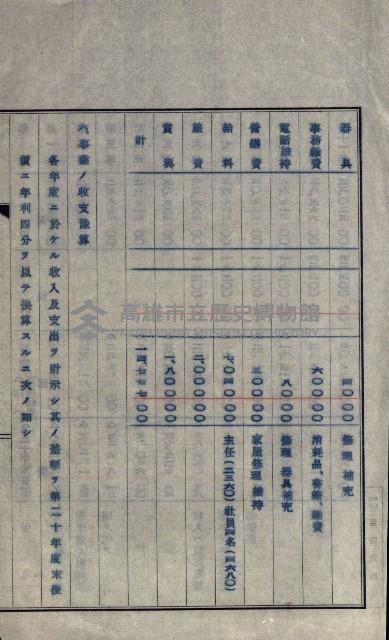 器具 四〇〇〇〇 修理 補充
事務雜費 六〇〇〇〇 消耗品、書籍、雜費
電話維持 八〇〇〇 修理 器具補充
營繕費 三〇〇〇〇 家屋修理 維持
給料 七、〇四〇〇〇 主任(二三六〇)社員四名(四六八〇)
旅費 二、〇〇〇〇〇
賞與 一、八〇〇〇〇
計 一四、七七〇〇
六、事業ノ收支豫算
各年度ニ於ケル收入及支出ヲ計示シ其ノ差額ヲ第二十年度末後
價ニ年利四分ヲ以テ換算スルニ次ノ如シ
高雄市立歷史博物館